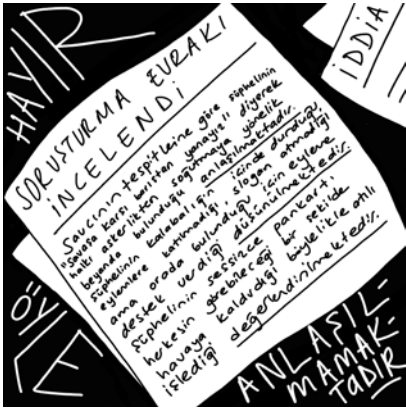 HAYIR
İDDİA
SORUŞTURMA EVRAKI
İNCELENDİ
Savcının tespitlerine göre şüphelinin
"Savaşa karşı, barıştan yanayız!" diyerek
halkı askerlikten soğutmaya yönelik
beyanda bulunduğu anlaşılmaktadır.
Şüphelinin kalabalığın içinde durduğu,
eylemlere katılmadığı, slogan atmadığı
ama orada bulunduğu için eyleme
destek verdiği düşünülmektedir.
Şüphelinin sessizce pankartı,
herkesin görebileceği bir şekilde
havaya kaldırdığı böylelikle atılı
işlediği değerlendirilmektedir.
ÖYLE
ANLAŞIL-
MAMAK-
TADIR